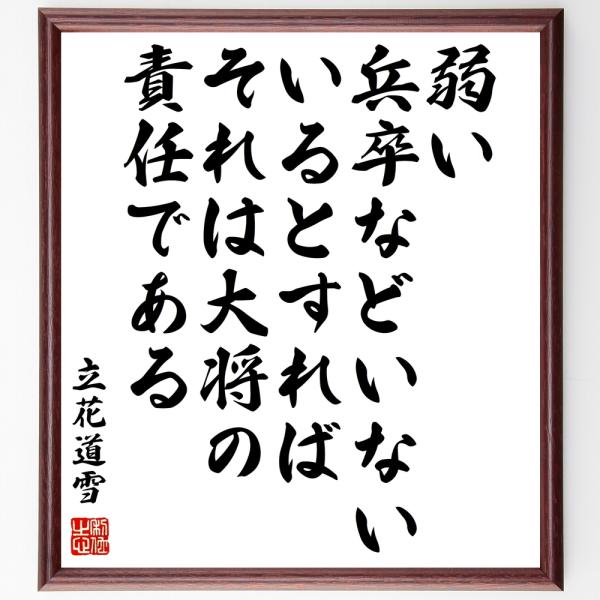 弱い
兵卒などいない
いるとすれば
それは大将の
責任である
立花道雪